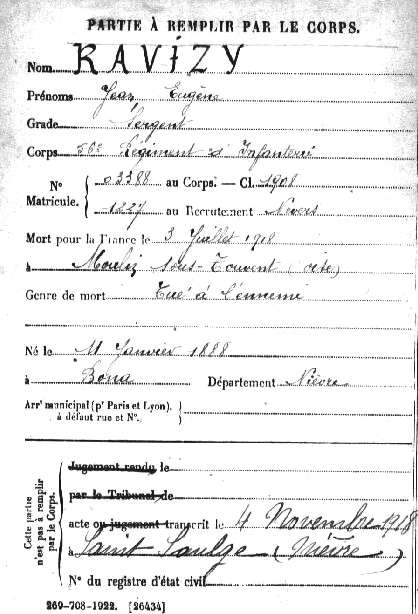 PARTIE À REMPLIR PAR LE CORPS.
Nom RAVIZY
Prénoms Jean Eugène
Grade Sergent
Corps 56e Régiment d'Infanterie
N° Matricule. { 03388 au Corps. — Cl. 1908
1227 au Recrutement Nevers
Mort pour la France le 3 Juillet 1918
à Moulin sous-Touvent (Oise)
Genre de mort Tué à l'ennemi
Né le 11 Janvier 1888
à Bona Département Nièvre
Arrt municipal (pr Paris et Lyon), à défaut rue et N°.
Cette partie n'est pas à remplir par le Corps.
Jugement rendu le
par le Tribunal de
acte ou jugement transcrit le 4 Novembre 1918
à Saint Saulge (Nièvre)
N° du registre d'état civil
269-708-1922. [26434]